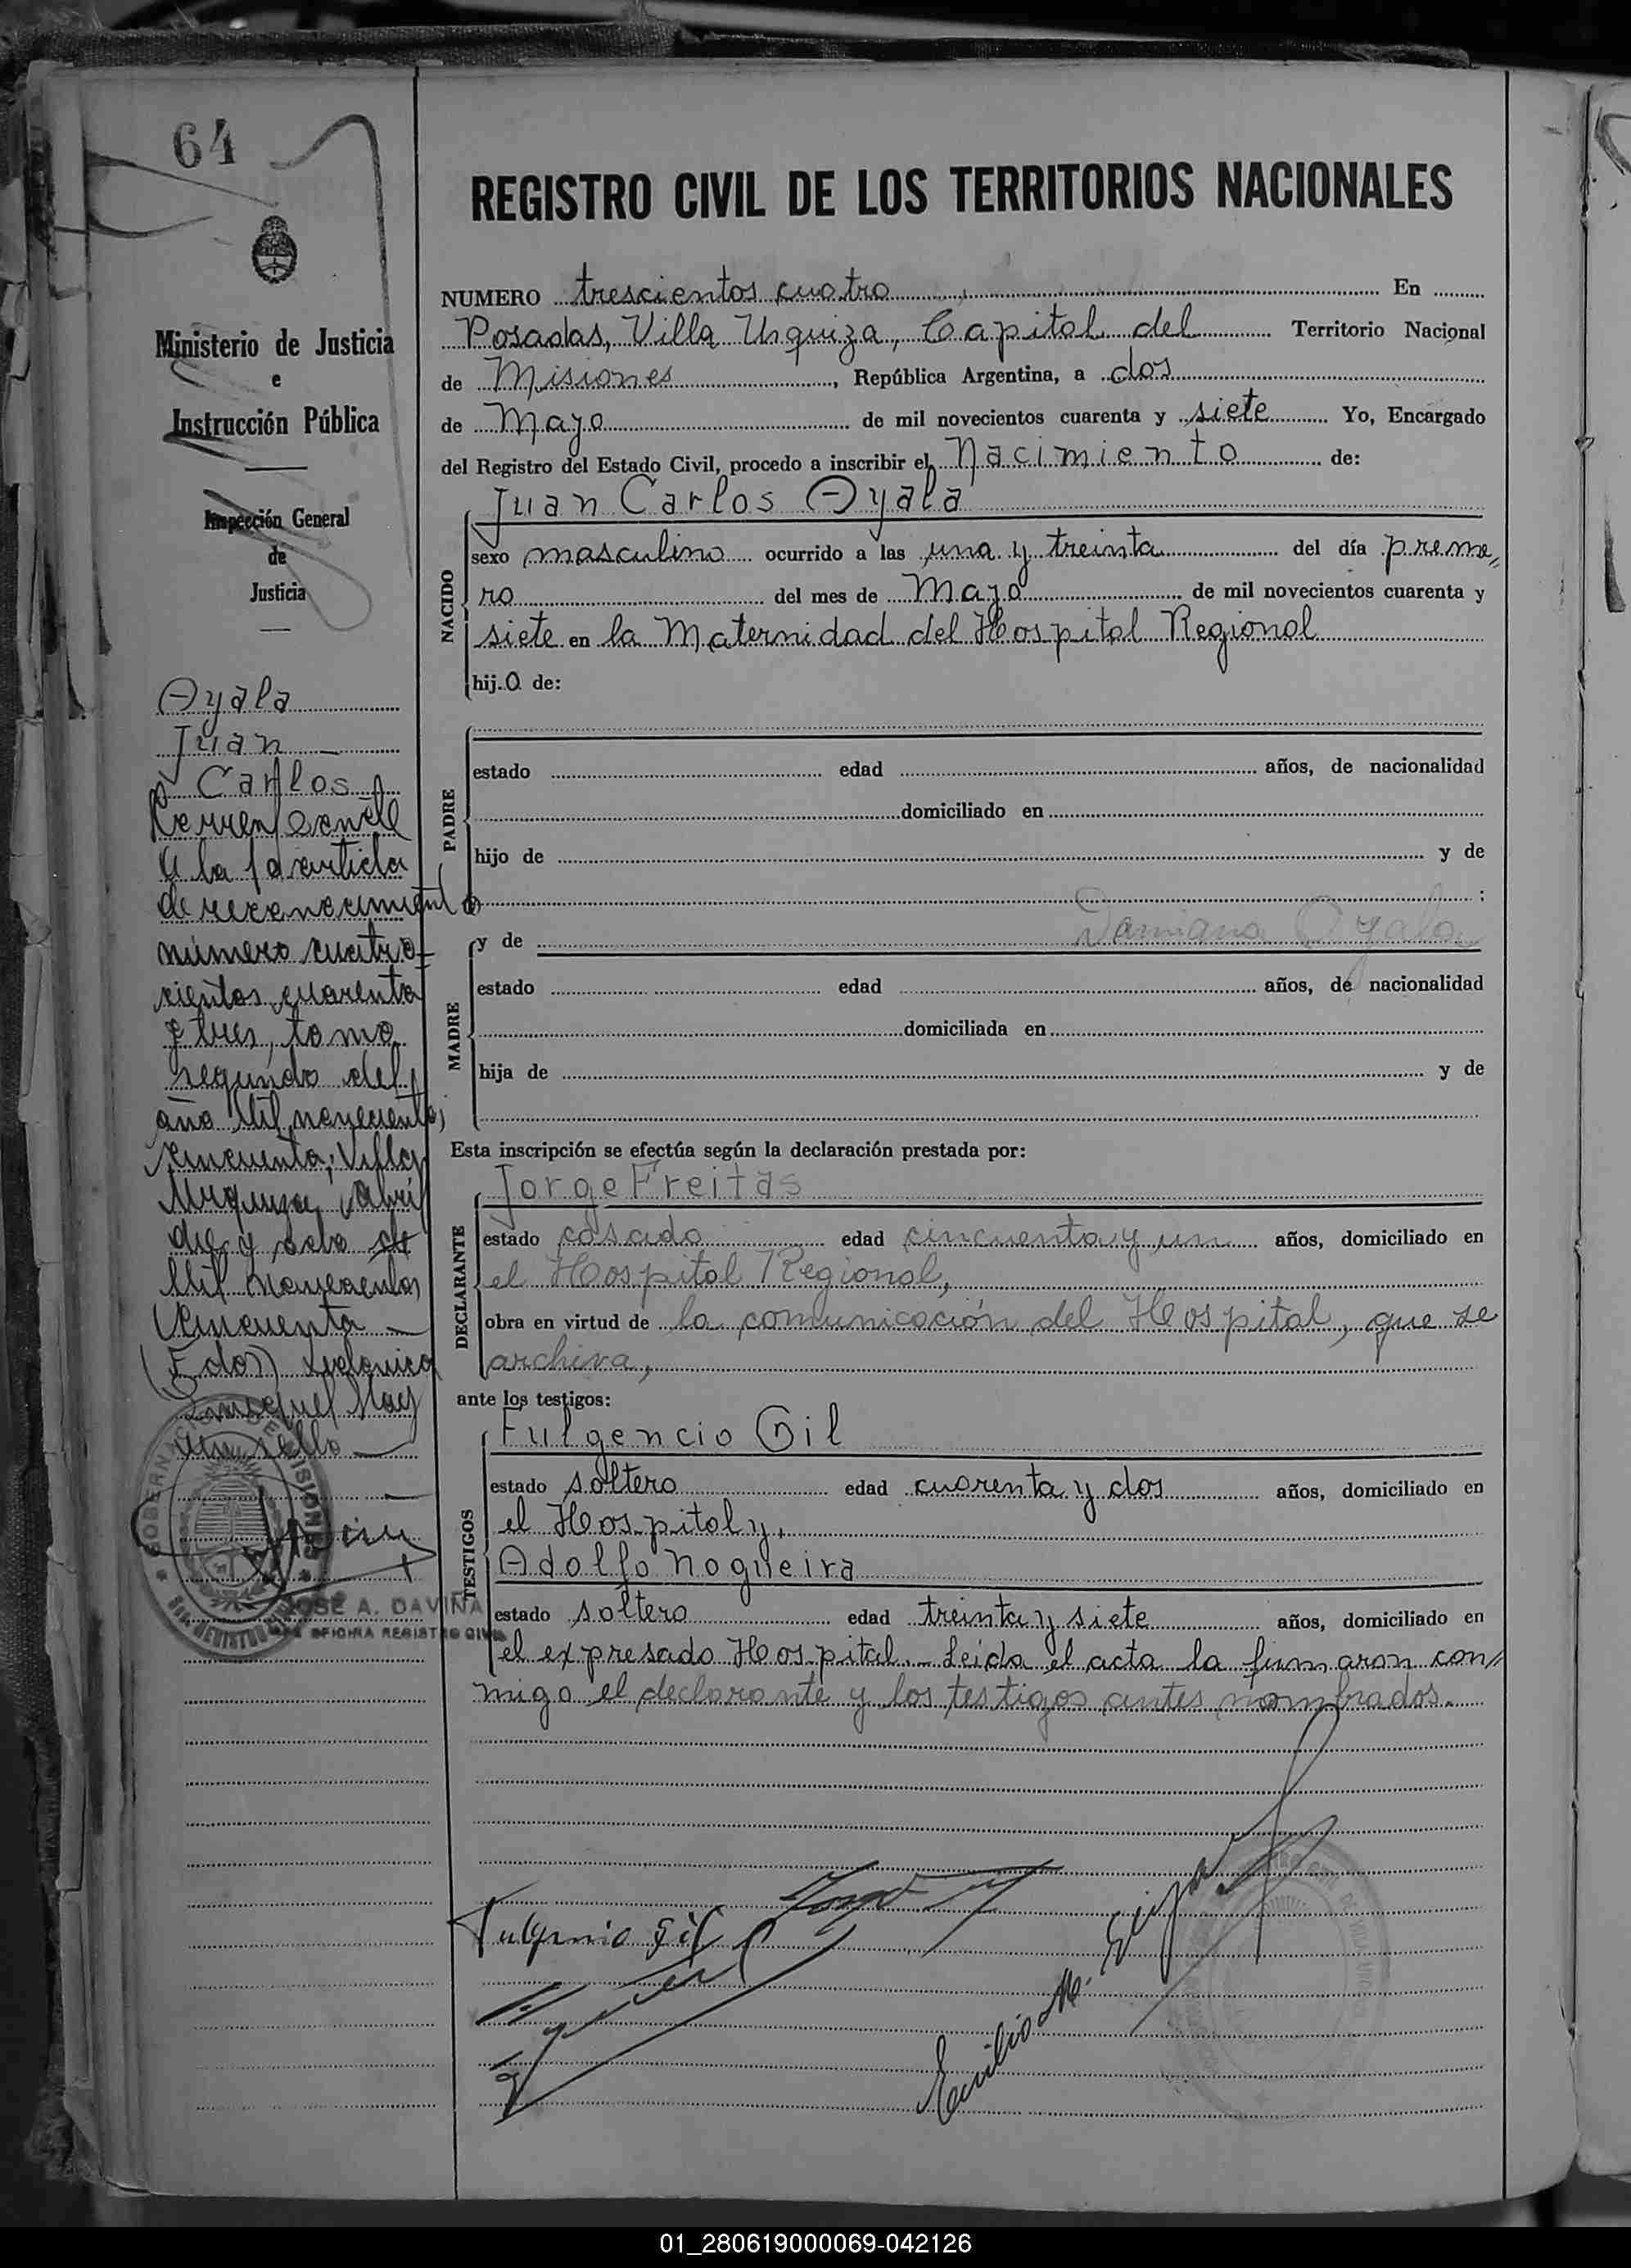 64
REGISTRO CIVIL DE LOS TERRITORIOS NACIONALES
Ministerio de Justicia
e
Instrucción Pública
Inspección General
de
Justicia
NUMERO trescientos cuatro En
Posadas, Villa Urquiza, Capital del Territorio Nacional
de Misiones, República Argentina, a dos
de Mayo de mil novecientos cuarenta y siete Yo, Encargado
del Registro del Estado Civil, procedo a inscribir el Nacimiento de:
NACIDO
Juan Carlos Ayala
sexo masculino ocurrido a las una y treinta del día prime
ro del mes de Mayo de mil novecientos cuarenta y
siete en la Maternidad del Hospital Regional
hijo de:
PADRE
estado edad años, de nacionalidad
domiciliado en
hijo de y de
:
MADRE
y de Damiana Ayala
estado edad años, de nacionalidad
domiciliada en
hija de y de
Esta inscripción se efectúa según la declaración prestada por:
DECLARANTE
Jorge Freitas
estado casado edad cincuenta y un años, domiciliado en
el Hospital Regional,
obra en virtud de la comunicación del Hospital, que se
archiva,
ante los testigos:
TESTIGOS
Fulgencio Gil
estado soltero edad cuarenta y dos años, domiciliado en
el Hospital y,
Adolfo Nogueira
estado soltero edad treinta y siete años, domiciliado en
el expresado Hospital.- Leida el acta la firmaron con
migo el declarante y los testigos antes nombrados.
Ayala
Juan
Carlos
a la partida
de reconocimiento
número cuatro-
cientos cuarenta
y tres, tomo
segundo del
año Mil novecientos
cincuenta; Villa
Urquiza, Abril
diez y ocho de
Mil novecientos
Cincuenta
(Fdos)
un sello
GOBERNACION DE MISIONES
JOSE A. DAVIÑA
OFICINA REGISTRO CIVIL
Fulgencio Gil
Emilio M.
01_280619000069-042126